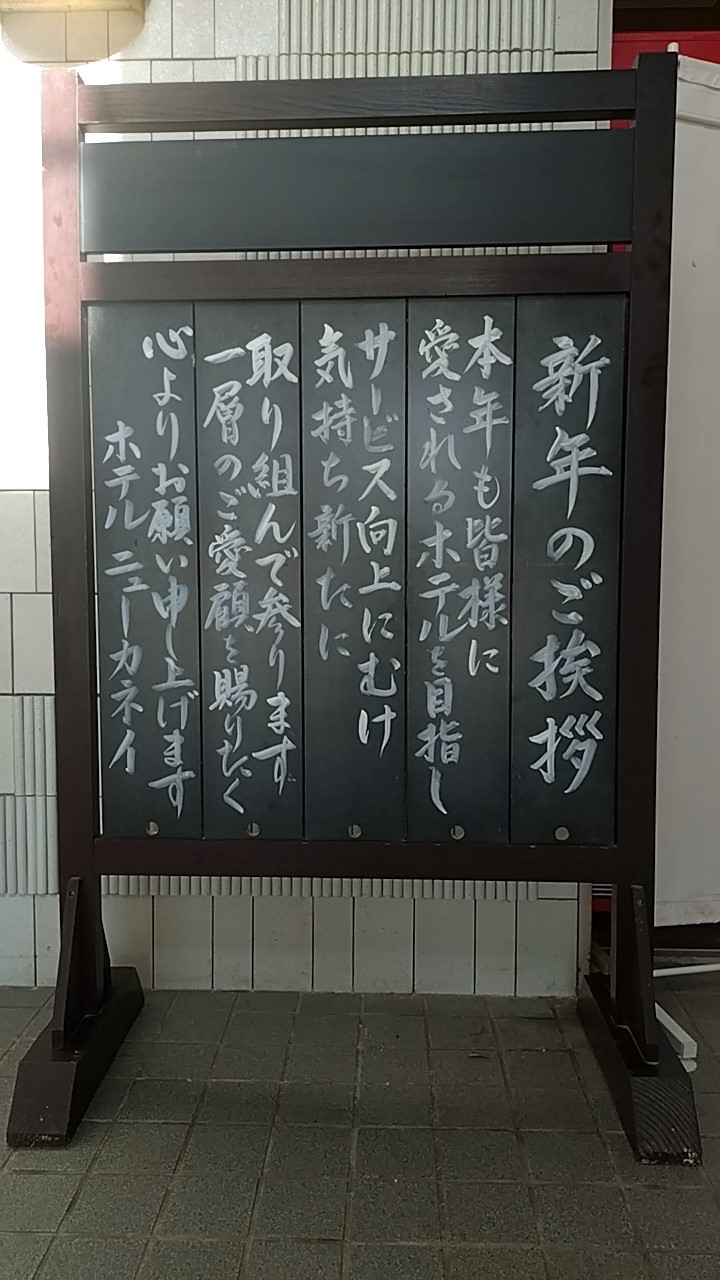 新年のご挨拶
本年も皆様に
愛されるホテルを目指し
サービス向上にむけ
気持ち新たに
取り組んで参ります
一層のご愛顧を賜りたく
心よりお願い申し上げます
ホテルニューカネイ